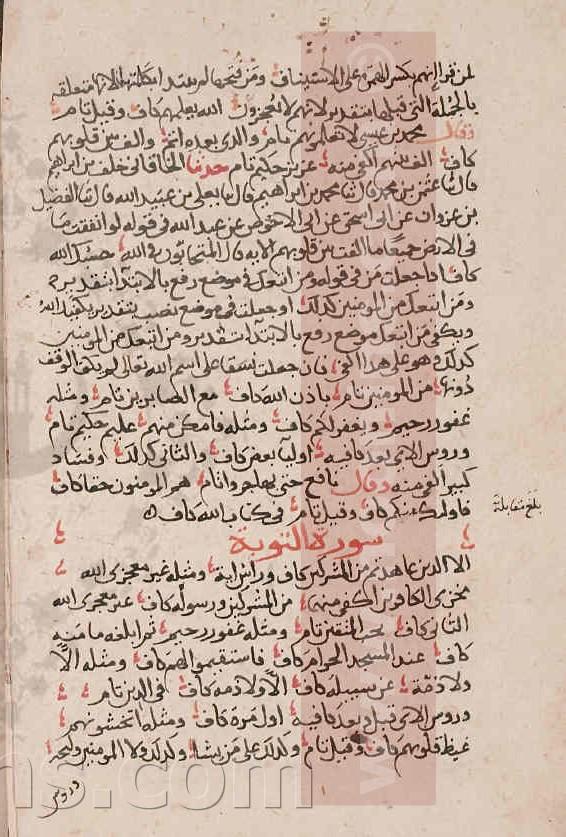 لمن قرا انهم بكسر الهمزة على الاستيناف ومن فتحها لم يبتد بها لانها متعلقة
بالجملة التي قبلها بتقدير لانهم لا يعجزون الله يعلمهم كاف وقيل تام
وقال محمد بن عيسى لا تعلمونهم تام والذي بعده اتم والف بين قلوبهم
كاف الف بينهم اكفى منه عزيز حكيم تام حدثنا الخاقاني خلف بن ابراهيم
قال ثنا عثمن بن محمد قال ثنا محمد بن ابراهيم قال ثنا يعلى بن عبيد الله قال ثنا الفضيل
بن غزوان عن ابي اسحق عن ابي الاحوص عن عبد الله في قوله لو انفقت ما
في الارض جميعا ما الفت بين قلوبهم الاية قال المتحابون في الله حسبك الله
كاف اذا جعلت من في قوله ومن اتبعك في موضع رفع بالابتدا بتقدير
ومن اتبعك من المومنين كذلك او جعلت في موضع نصب بتقدير يكفيك الله
ويكفي من اتبعك موضع رفع بالابتدا بتقدير ومن اتبعك من المومنين
كذلك وهو على هذا اكفى فان جعلت نسقا على اسم الله تعالى لم يكف الوقف
دونها من المومنين تام باذن الله كاف مع الصابرين تام ومثله
غفور رحيم ويغفر لكم كاف ومثله فامكن منهم عليم حكيم تام
وروس الاي بعد كافية اوليآ بعض كاف والثاني كذلك وفساد
كبير اكفى منه وقال نافع حتى يهاجروا تام هم المومنون حقا كاف
فاولئك منكم كاف وقيل تام في كتاب الله كاف
بلغ مقابلة
سورة التوبة
الا الذين عاهدتم من المشركين كاف وراس اية ومثله غير معجزي الله
مخزي الكافرين اكفى منها من المشركين ورسوله كاف غير معجزي الله
الثاني كاف يحب المتقين تام ومثله غفور رحيم ثم ابلغه مامنه
كاف عند المسجد الحرام كاف فاستقيموا لهم كاف ومثله الّا
ولا ذمّة عن سبيله كاف الّا ولا ذمة كاف في الدين تام
وروس الاي قبل وبعد كافية اول مرة كاف ومثله اتخشونهم
غيظ قلوبهم كاف وقيل تام وكذلك على من يشا وكذلك ولا المومنين وليجة
وروس